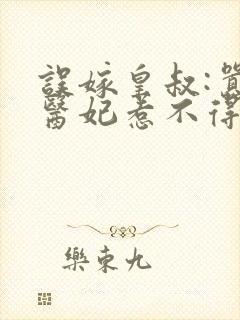 誤嫁皇叔:
醫妃惹不得
樂東九